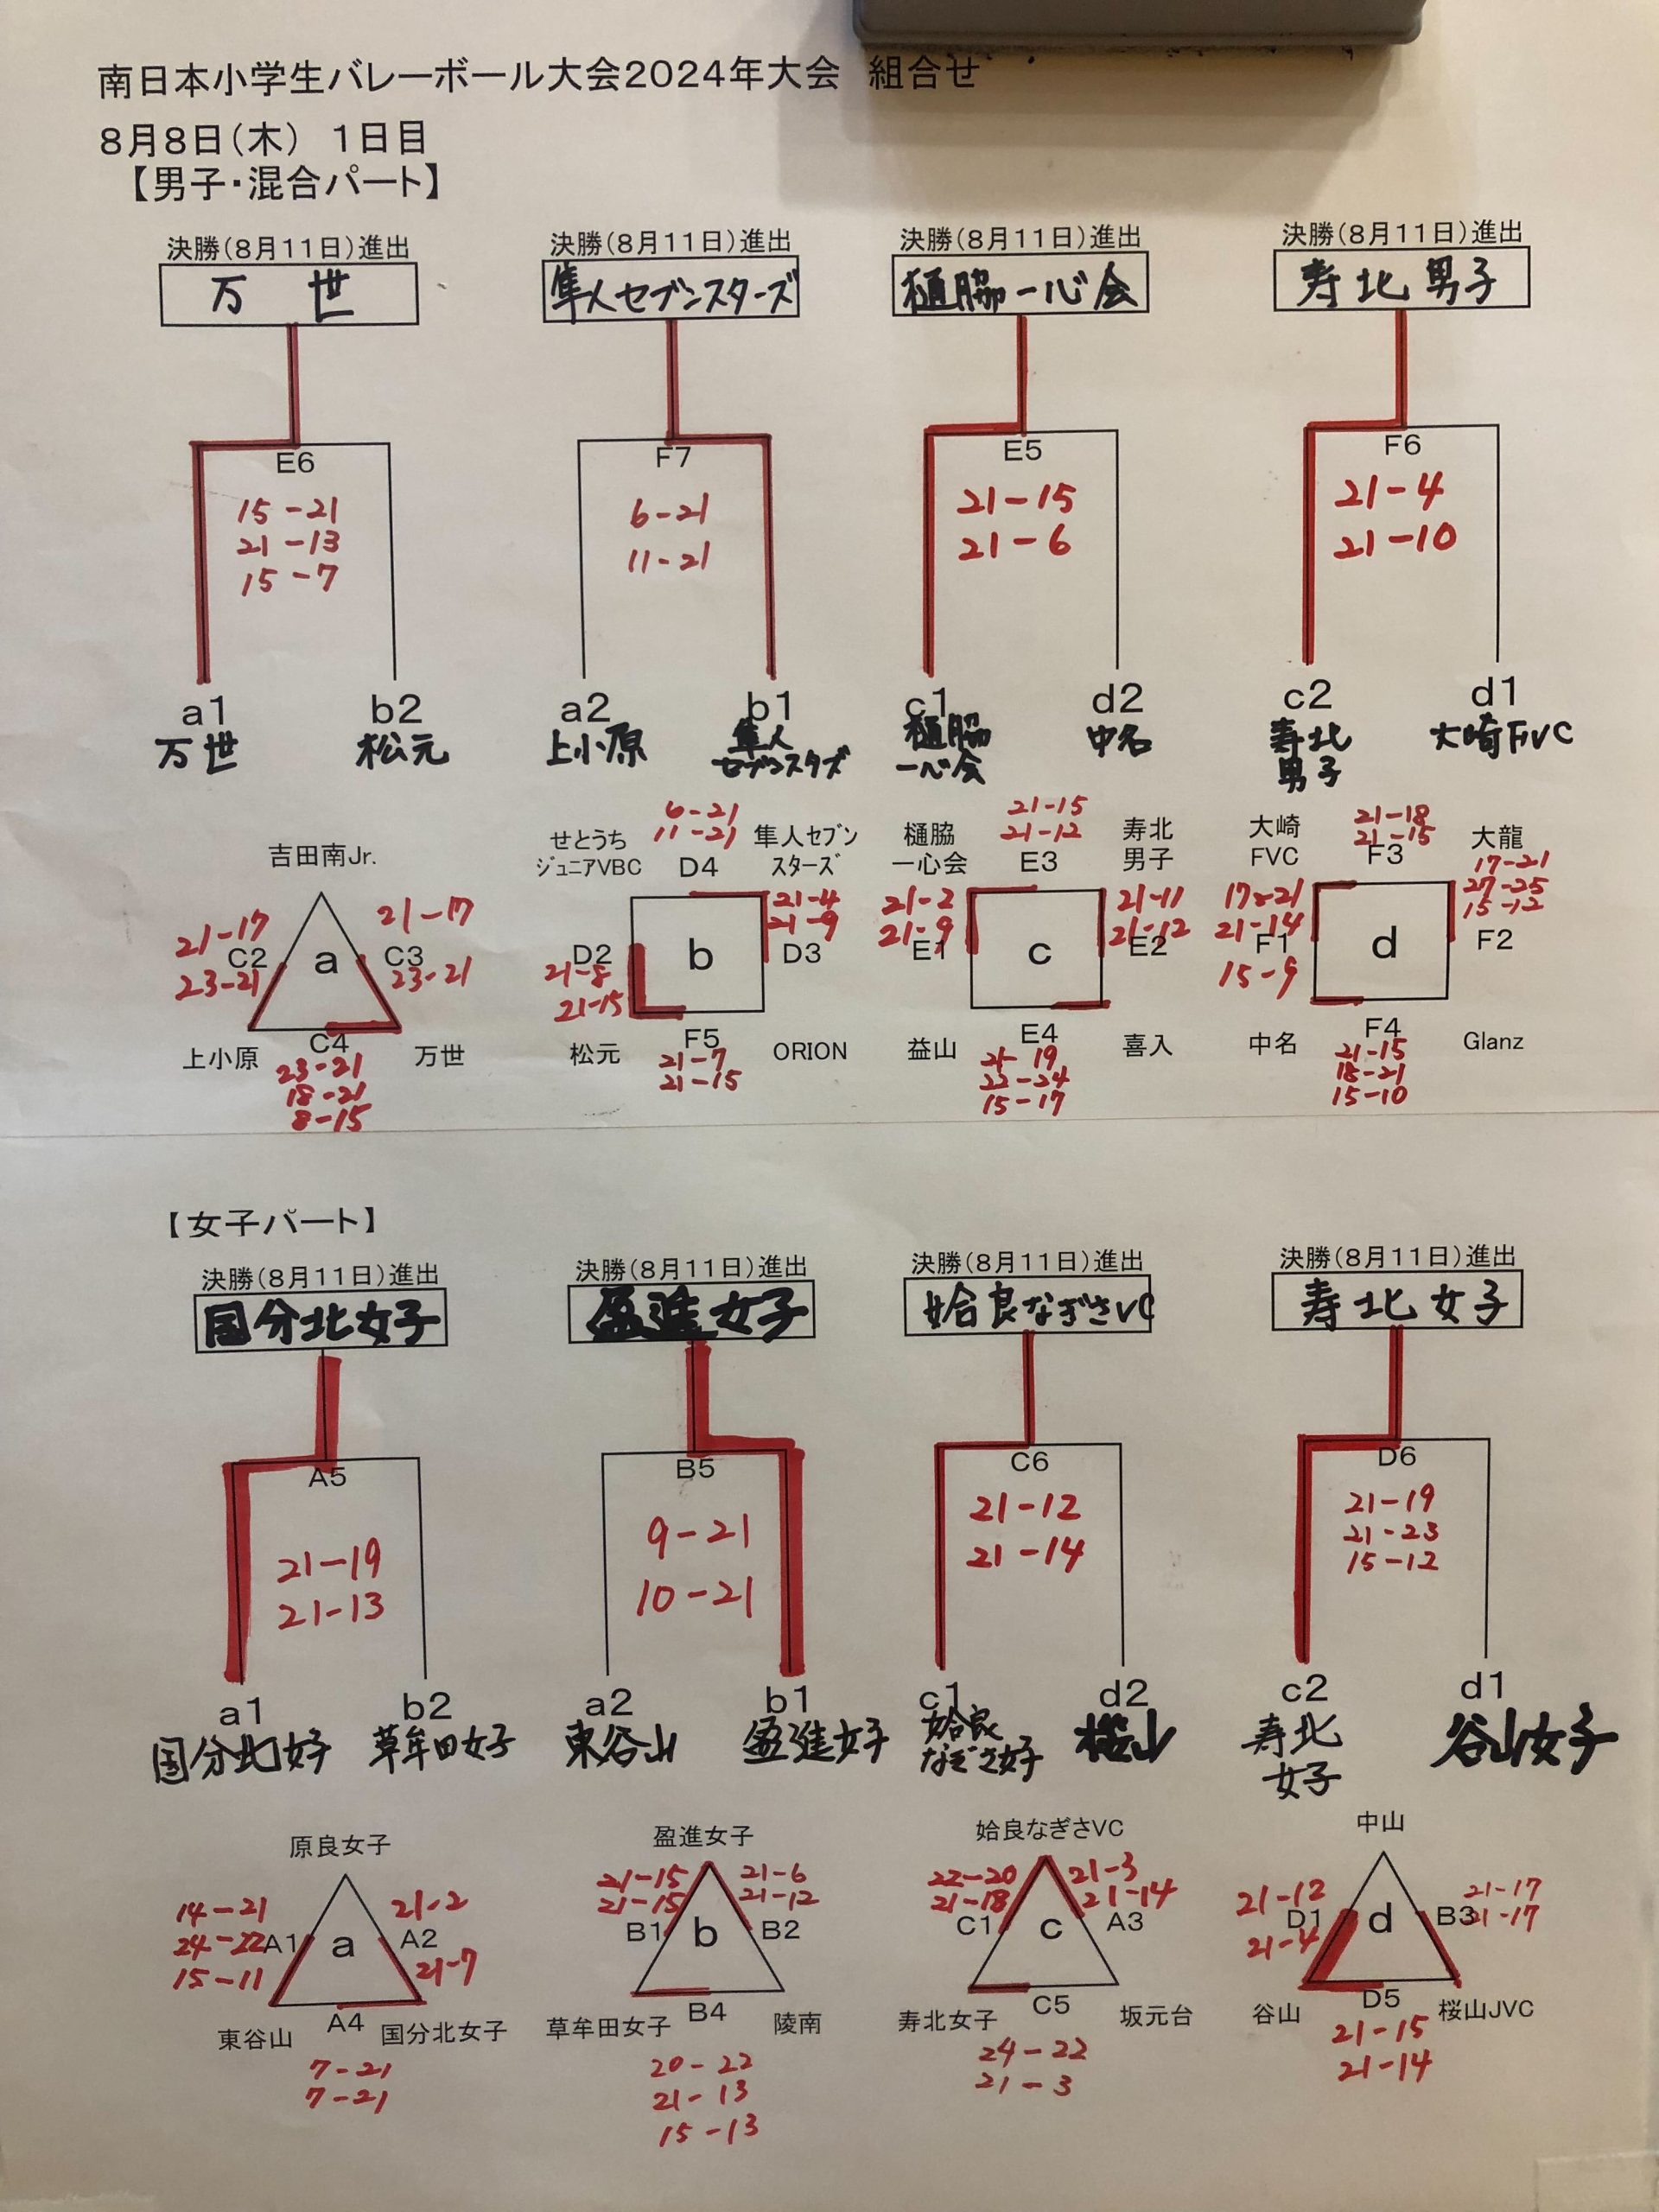 南日本小学生バレーボール大会2024年大会 組合せ
8月8日(木) 1日目
【男子・混合パート】
決勝(8月11日)進出 決勝(8月11日)進出 決勝(8月11日)進出 決勝(8月11日)進出
万世 隼人セブンスターズ 樋脇一心会 寿北男子
E6 F7 E5 F6
15-21 6-21 21-15 21-4
21-13 11-21 21-6 21-10
15-7
a1 b2 a2 b1 c1 d2 c2 d1
万世 松元 上小原 隼人セブンスタズ 樋脇一心会 中名 寿北男子 大崎FVC
吉田南Jr.
21-17
23-21
C2
a
21-17
C3
23-21
上小原
C4
万世
23-21
18-21
8-15
せとうち
ジュニアVBC
6-21
11-21
D4
隼人セブン
スターズ
D2
21-8
21-15
b
21-4
21-9
D3
松元
F5
ORION
21-7
21-15
樋脇
一心会
21-15
21-12
E3
寿北
男子
21-2
21-9
E1
c
21-11
21-12
E2
益山
E4
喜入
21-19
22-24
15-17
大崎
FVC
21-18
21-15
F3
大龍
17-21
21-14
F1
15-9
d
17-21
27-25
15-12
F2
中名
F4
Glanz
21-15
18-21
15-10
【女子パート】
決勝(8月11日)進出 決勝(8月11日)進出 決勝(8月11日)進出 決勝(8月11日)進出
国分北女子 盈進女子 姶良なぎさVC 寿北女子
A5 B5 C6 D6
21-19 9-21 21-12 21-19
21-13 10-21 21-14 21-23
15-12
a1 b2 a2 b1 c1 d2 c2 d1
国分北女子 草牟田女子 東谷山 盈進女子 姶良なぎさ女子 桜山 寿北女子 谷山女子
原良女子
14-21
24-22
15-11
A1
a
21-2
A2
21-7
東谷山
A4
国分北女子
7-21
7-21
盈進女子
21-15
21-15
B1
b
21-6
21-12
B2
草牟田女子
B4
陵南
20-22
21-13
15-13
姶良なぎさVC
22-20
21-18
C1
c
21-3
21-14
A3
寿北女子
C5
坂元台
24-22
21-3
中山
21-12
D1
21-4
d
21-17
B3
21-17
谷山
D5
桜山JVC
21-15
21-14